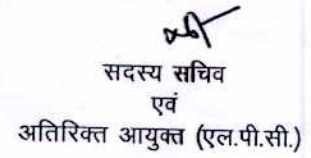 सदस्य सचिव
एवं
अतिरिक्त आयुक्त (एल.पी.सी.)